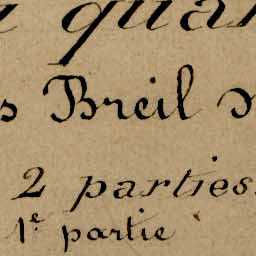 quar
s Breil
2 parties.
1e partie